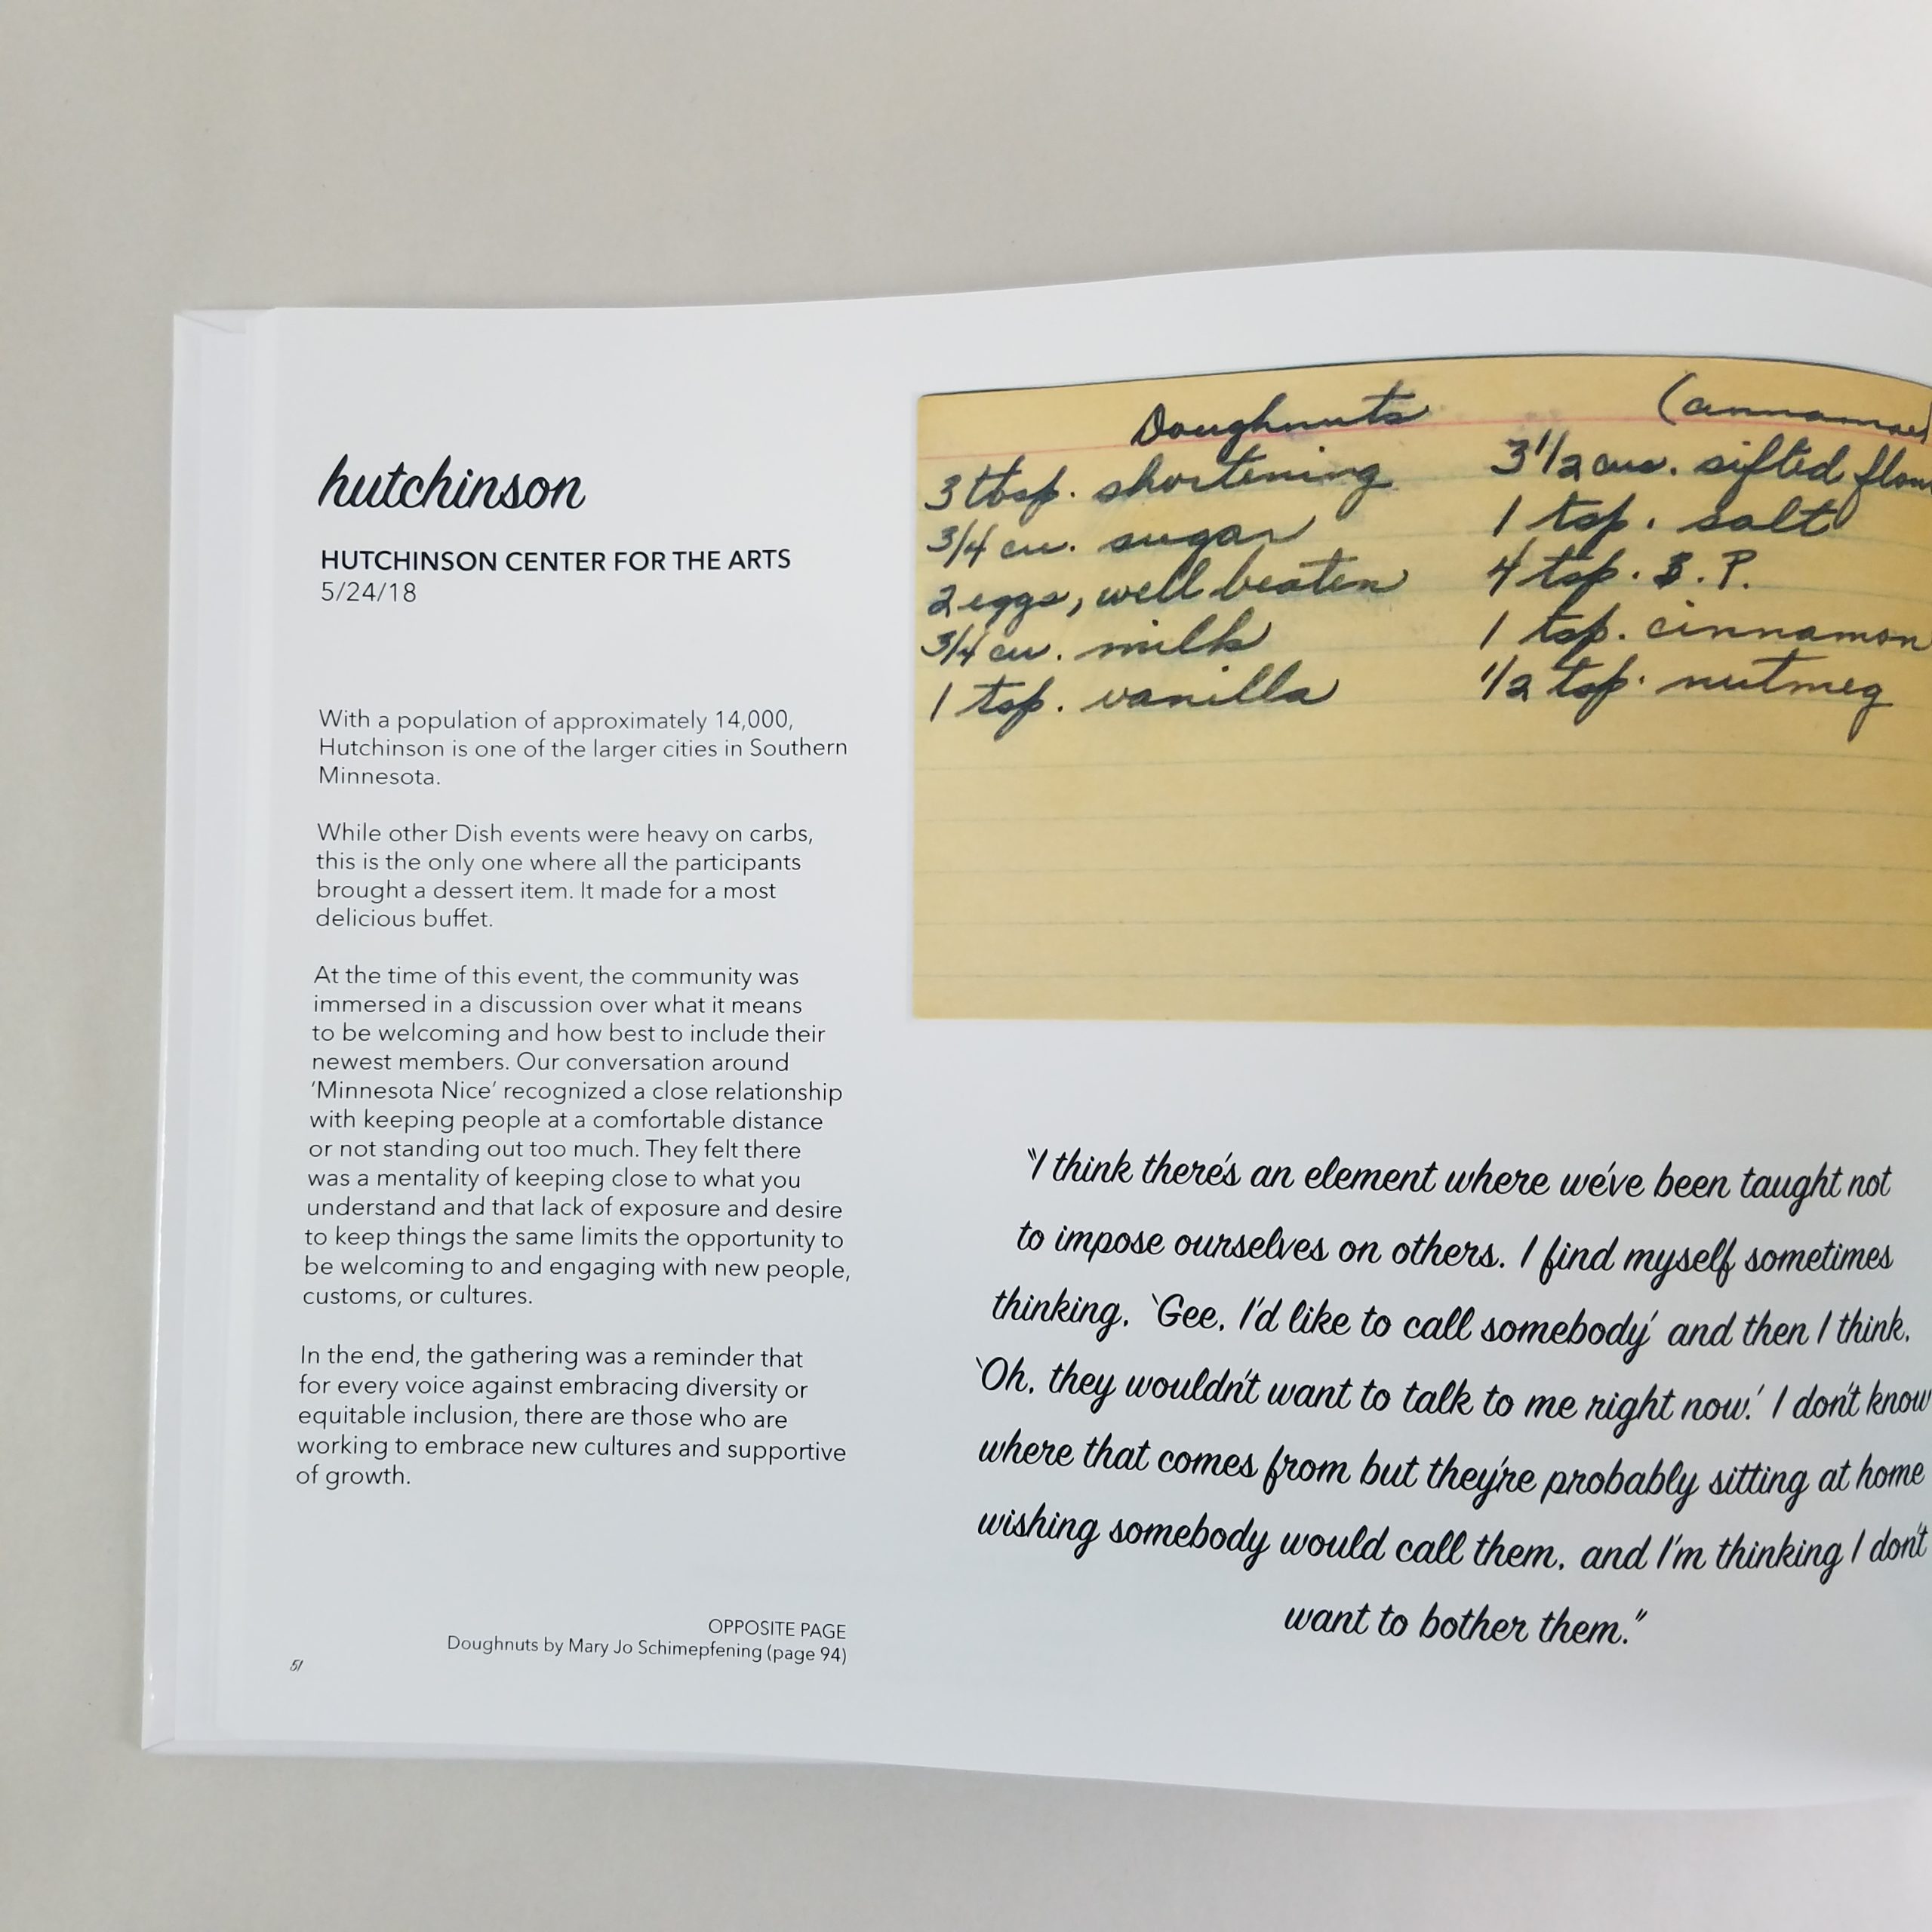 hutchinson
HUTCHINSON CENTER FOR THE ARTS
5/24/18
With a population of approximately 14,000,
Hutchinson is one of the larger cities in Southern
Minnesota.
While other Dish events were heavy on carbs,
this is the only one where all the participants
brought a dessert item. It made for a most
delicious buffet.
At the time of this event, the community was
immersed in a discussion over what it means
to be welcoming and how best to include their
newest members. Our conversation around
‘Minnesota Nice’ recognized a close relationship
with keeping people at a comfortable distance
or not standing out too much. They felt there
was a mentality of keeping close to what you
understand and that lack of exposure and desire
to keep things the same limits the opportunity to
be welcoming to and engaging with new people,
customs, or cultures.
In the end, the gathering was a reminder that
for every voice against embracing diversity or
equitable inclusion, there are those who are
working to embrace new cultures and supportive
of growth.
OPPOSITE PAGE
Doughnuts by Mary Jo Schimepfening (page 94)
51
Doughnuts
3 tbsp. shortening
3/4 cu. sugar
2 eggs, well beaten
3/4 cu. milk
1 tsp. vanilla
3 1/2 cus. sifted
1 tsp. salt
4 tsp. B.P.
1 tsp. cinnamon
1/2 tsp. nutmeg
"I think there's an element where we've been taught not
to impose ourselves on others. I find myself sometimes
thinking, 'Gee, I'd like to call somebody' and then I think,
'Oh, they wouldn't want to talk to me right now.' I don't know
where that comes from but they're probably sitting at home
wishing somebody would call them, and I'm thinking I don't
want to bother them."